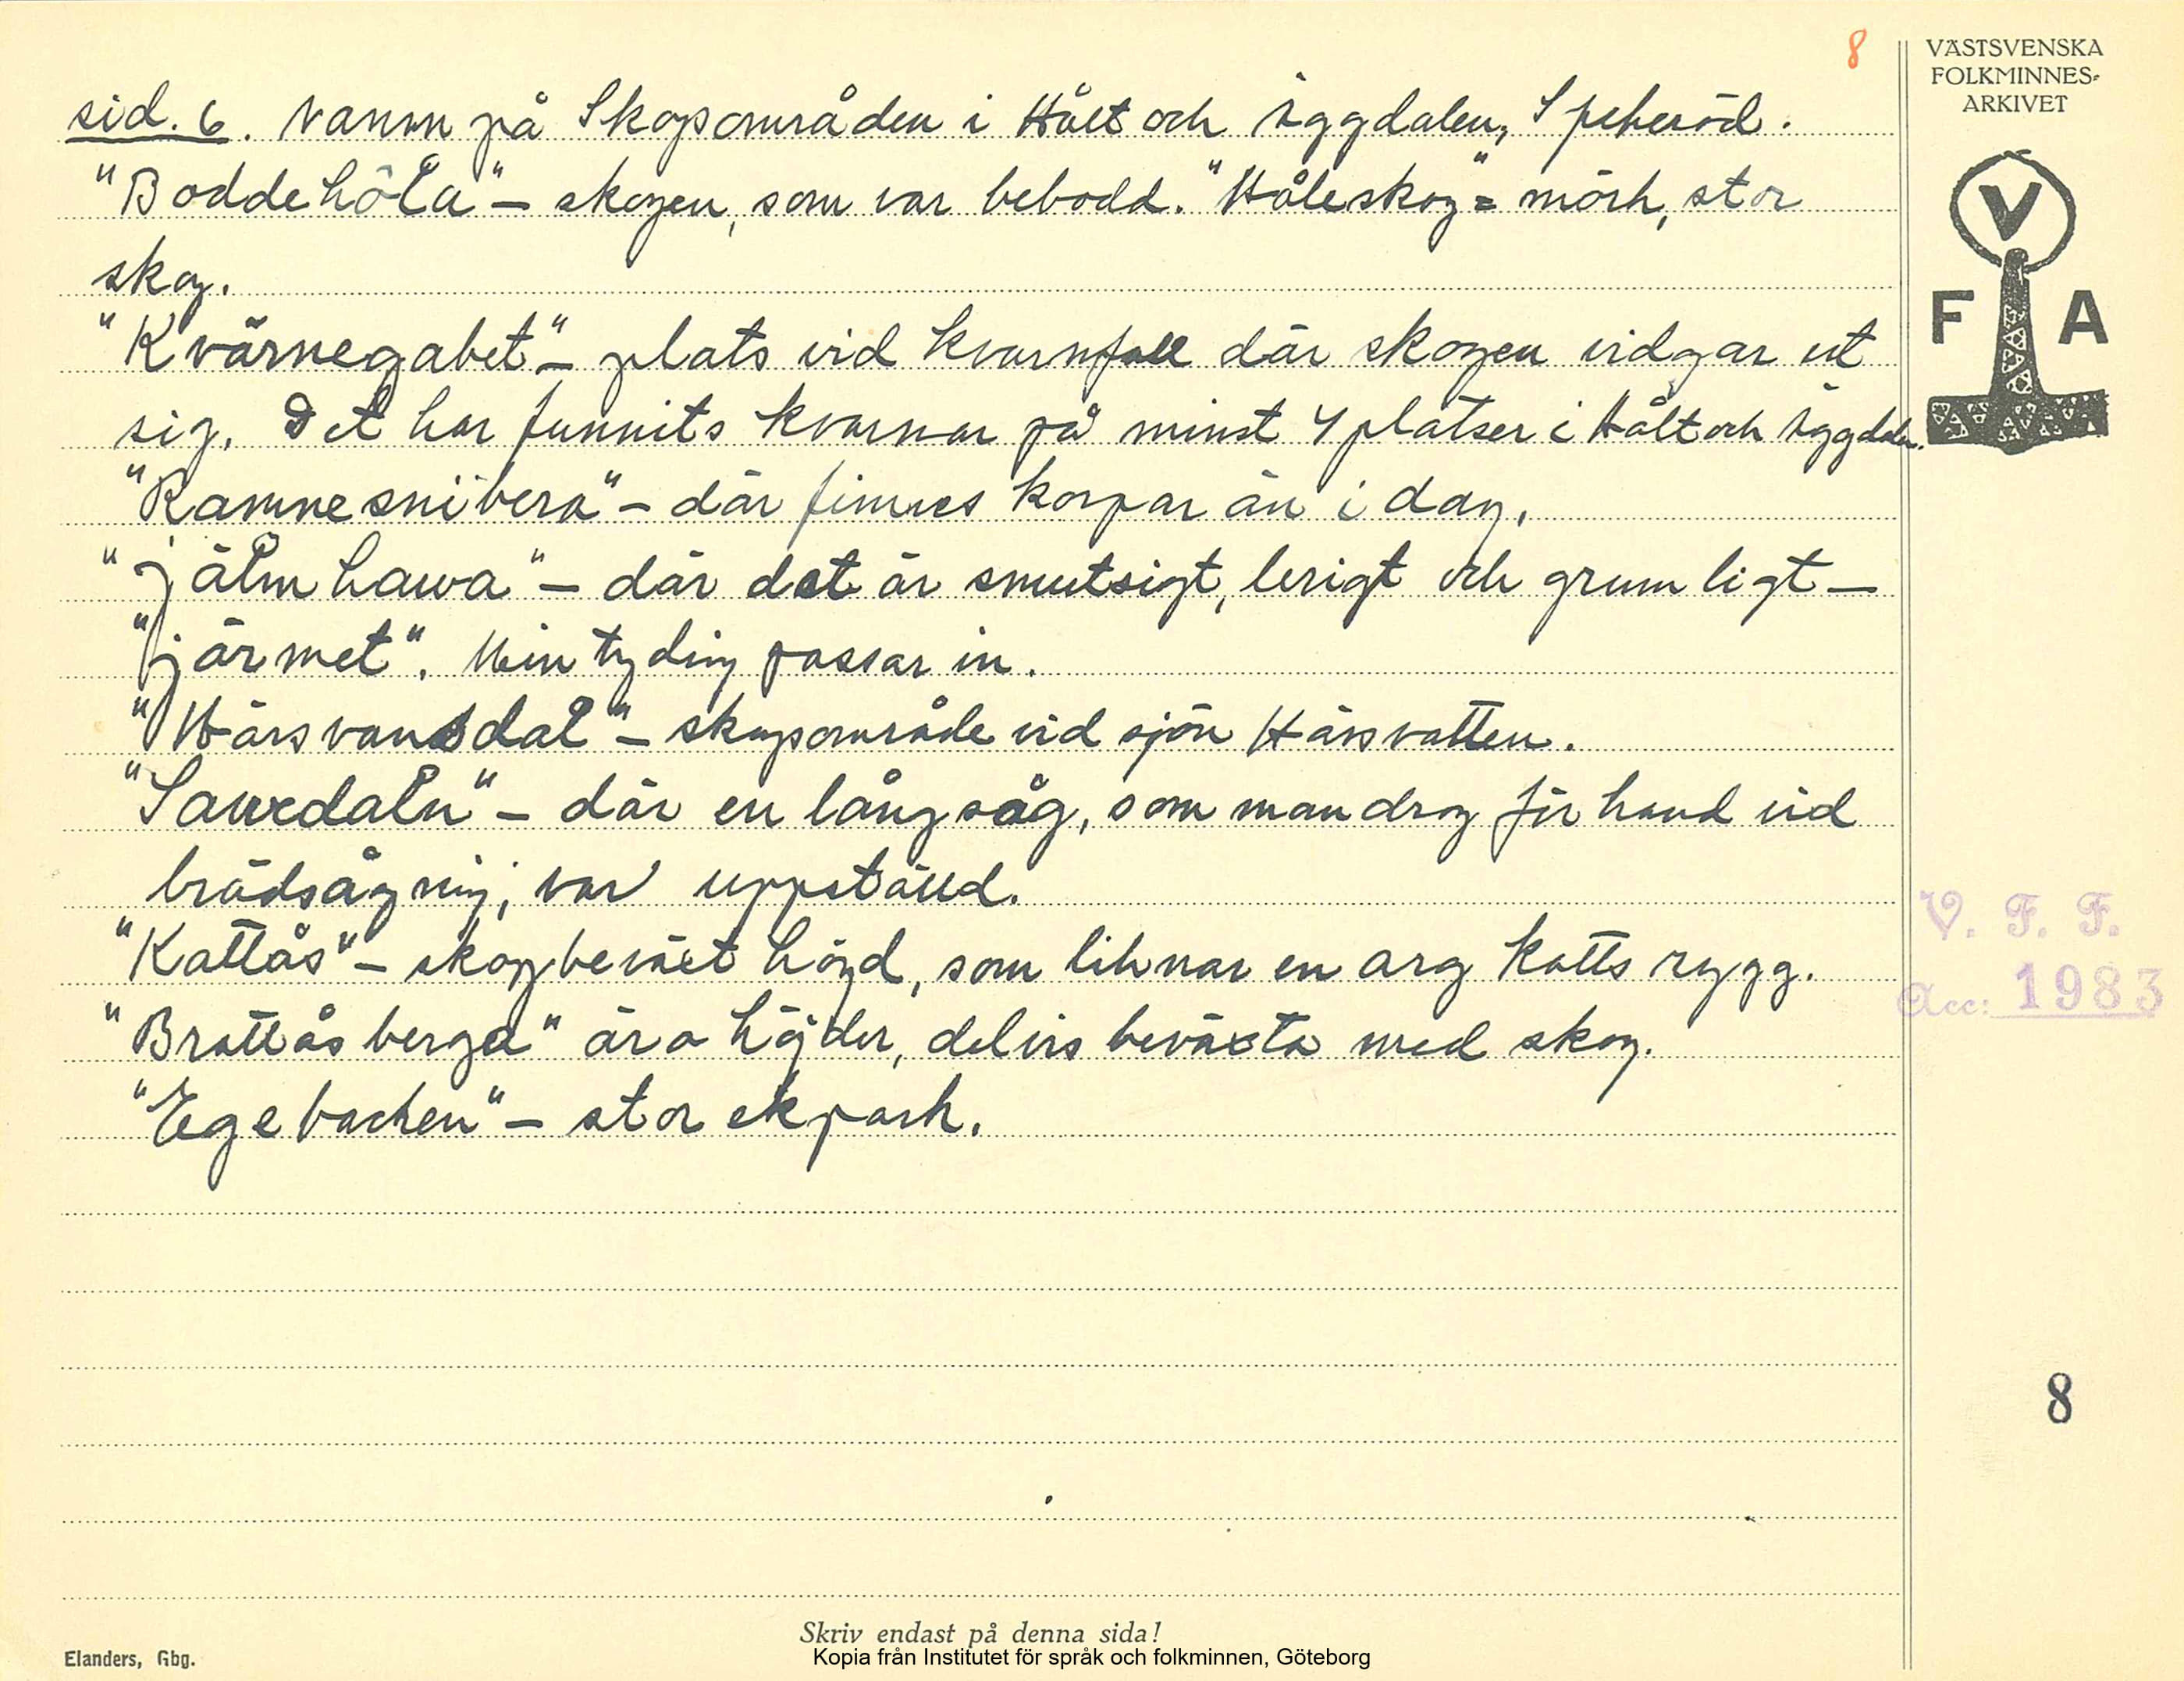 8
VÄSTSVENSKA
FOLKMINNES-
ARKIVET
V
F A
sid. 6. Namn på Skogsområden i Hålt och Äggdalen, Spekeröd.
"Boddehôła" – skogen, som var bebodd. "Håleskog" = mörk, stor
skog.
"Kvärnegabet" – plats vid kvarnfall där skogen vidgar ut
sig. Det har funnits kvarnar på minst 4 platser i Hålt och Äggdalen.
"Ramnesnibera" – där finnes korpar än i dag.
"Jäłmhawa" – där det är smutsigt, lerigt och grumligt –
"järmet". Min tyding passar in.
"Härsvansdał" – skogsområde vid sjön Härsvatten.
"Sawedałn" – där en långsåg, som man drog för hand vid
brädsågning, var uppställd.
"Kattås" – skogbeväxt höjd, som liknar en arg katts rygg.
"Brattåsberga" äro höjder, delvis beväxta med skog.
"Egebacken" – stor ekpark.
V. F. F.
Acc: 1983
8
Skriv endast på denna sida!
Elanders, Gbg.
Kopia från Institutet för språk och folkminnen, Göteborg